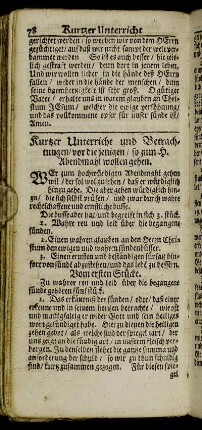 78 Kurtzer Unterricht
gerichtet werden / so werden wir von dem HErrn
gezüchtiget / auf daß wir nicht samt der welt ver-
dammet werden. So ist es auch besser / hie zeit-
lich gestraft werden / denn dort in jenem leben.
Und wir wollen lieber in die hände des HErrn
fallen / weder in die hände der menschen / denn
seine barmhertzigkeit ist sehr groß. O gütiger
Vater / erhalte uns in warem glauben an Chri-
stum JEsum / welcher die ewige versöhnung /
und das vollkommene opfer für unser sünde ist/
Amen.
Kurtzer Unterricht und Betrach-
tungen / vor diejenigen / so zum H.
Abendmahl wollen gehen.
WEr zum hochwürdigen Abendmahl gehen
wil / der sol wol zusehen / daß er würdiglich
hinzu gehe. Die aber gehen würdiglich hin-
zu / die sich selbst prüfen / und zwar durch wahre
rechtschaffene und ernstliche busse.
Die busse aber hat / und begreift in sich 3. stück.
1. Wahre reu und leid über die begangene
sünden.
2. Einen wahren glauben an den Herrn Chri-
stum den ewigen und wahren sündenbüsser.
3. Einen ernsten und beständigen fürsatz hin-
fort von sünden abzustehen / und das leben zu bessern.
Vom ersten Stücke.
Zu wahrer reu und leid über die begangene
sünde gehören fünf stück.
1. Das erkäntnis der sünden / daß einer
erkenne und in seinem hertzen betrachte / wie oft
und mannigfaltig er wider Gott und sein heiliges
wort gesündiget habe. Hierzu dienen die heiligen
zehen gebot / als der rechte sünden-spiegel / der
uns zeiget an die sünde
und
anforderung der
kurtz zusammen gezogen. Für diesen spie-
gel